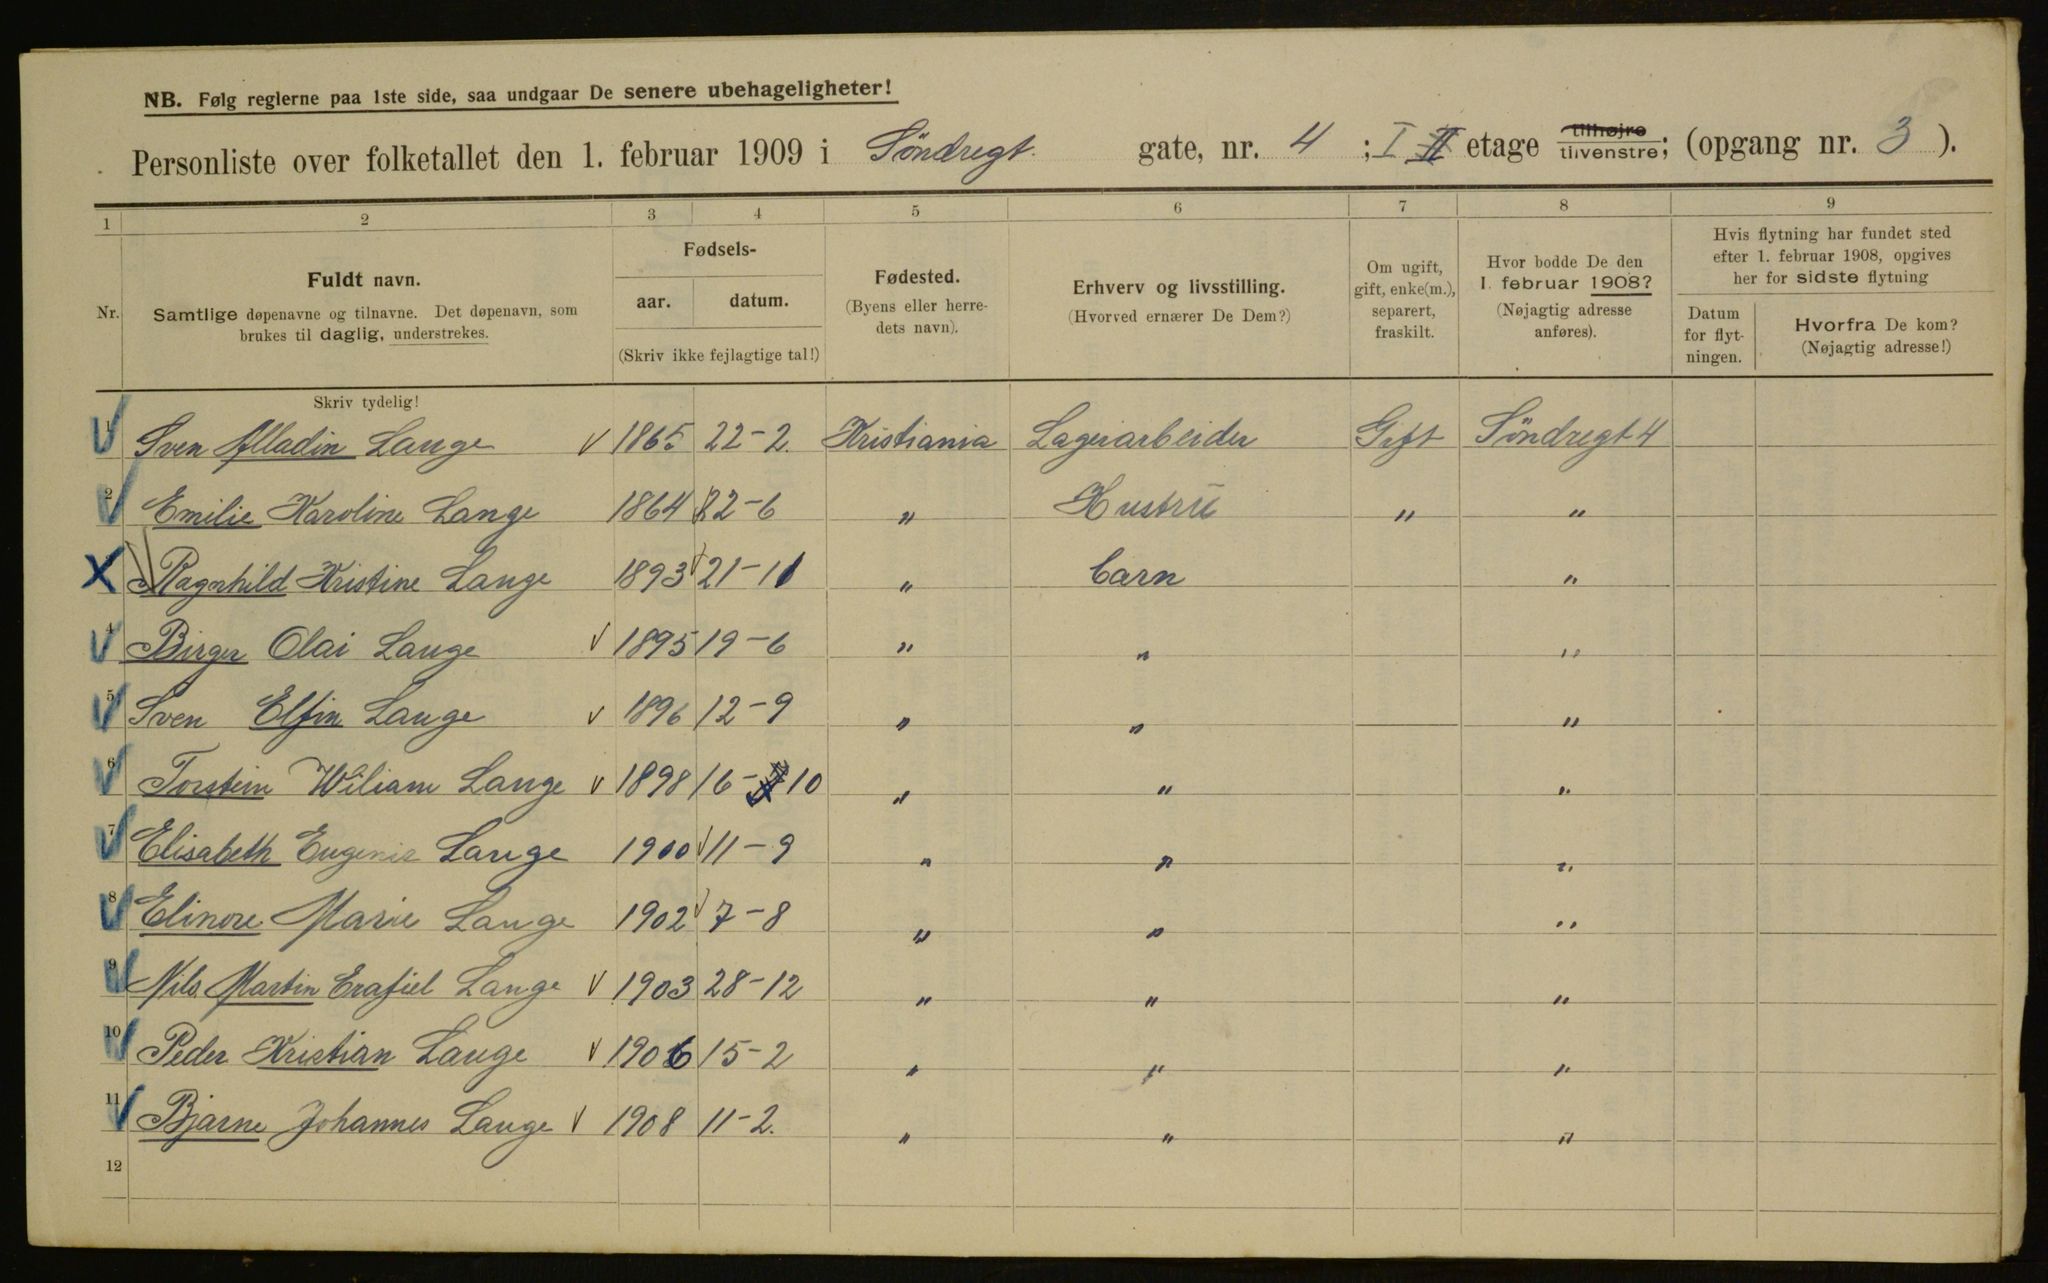 NB. Følg reglerne paa 1ste side, saa undgaar De senere ubehageligheter!
Personliste over folketallet den 1. februar 1909 i Søndregt. gate, nr. 4 ; I II etage tilhøjre tilvenstre; (opgang nr. 3 ).
1 2 3 4 5 6 7 8 9
Nr.
Fuldt navn.
Samtlige døpenavne og tilnavne. Det døpenavn, som
brukes til daglig, understrekes.
Fødsels-
aar. datum.
(Skriv ikke fejlagtige tal!)
Fødested.
(Byens eller herre-
dets navn).
Erhverv og livsstilling.
(Hvorved ernærer De Dem?)
Om ugift,
gift, enke(m.),
separert,
fraskilt.
Hvor bodde De den
1. februar 1908?
(Nøjagtig adresse
anføres).
Hvis flytning har fundet sted
efter 1. februar 1908, opgives
her for sidste flytning
Datum
for flyt-
ningen.
Hvorfra De kom?
(Nøjagtig adresse!)
Skriv tydelig!
1 Sven Alladin Lange 1865 22-2. Kristiania Lagerarbeider Gift Søndregt 4
2 Emilie Karoline Lange 1864 22-6 " Hustru " "
Ragnhild Kristine Lange 1893 21-11 " barn "
4 Birger Olai Lange 1895 19-6 " " "
5 Sven Elfin Lange 1896 12-9 " " "
6 Torstein Wiliam Lange 1898 16-10 " " "
7 Elisabeth Eugenie Lange 1900 11-9 " " "
8 Elinore Marie Lange 1902 7-8 " " "
9 Nils Martin Erafiel Lange 1903 28-12 " " "
10 Peder Kristian Lange 1906 15-2 " " "
11 Bjarne Johannes Lange 1908 11-2. " " "
12